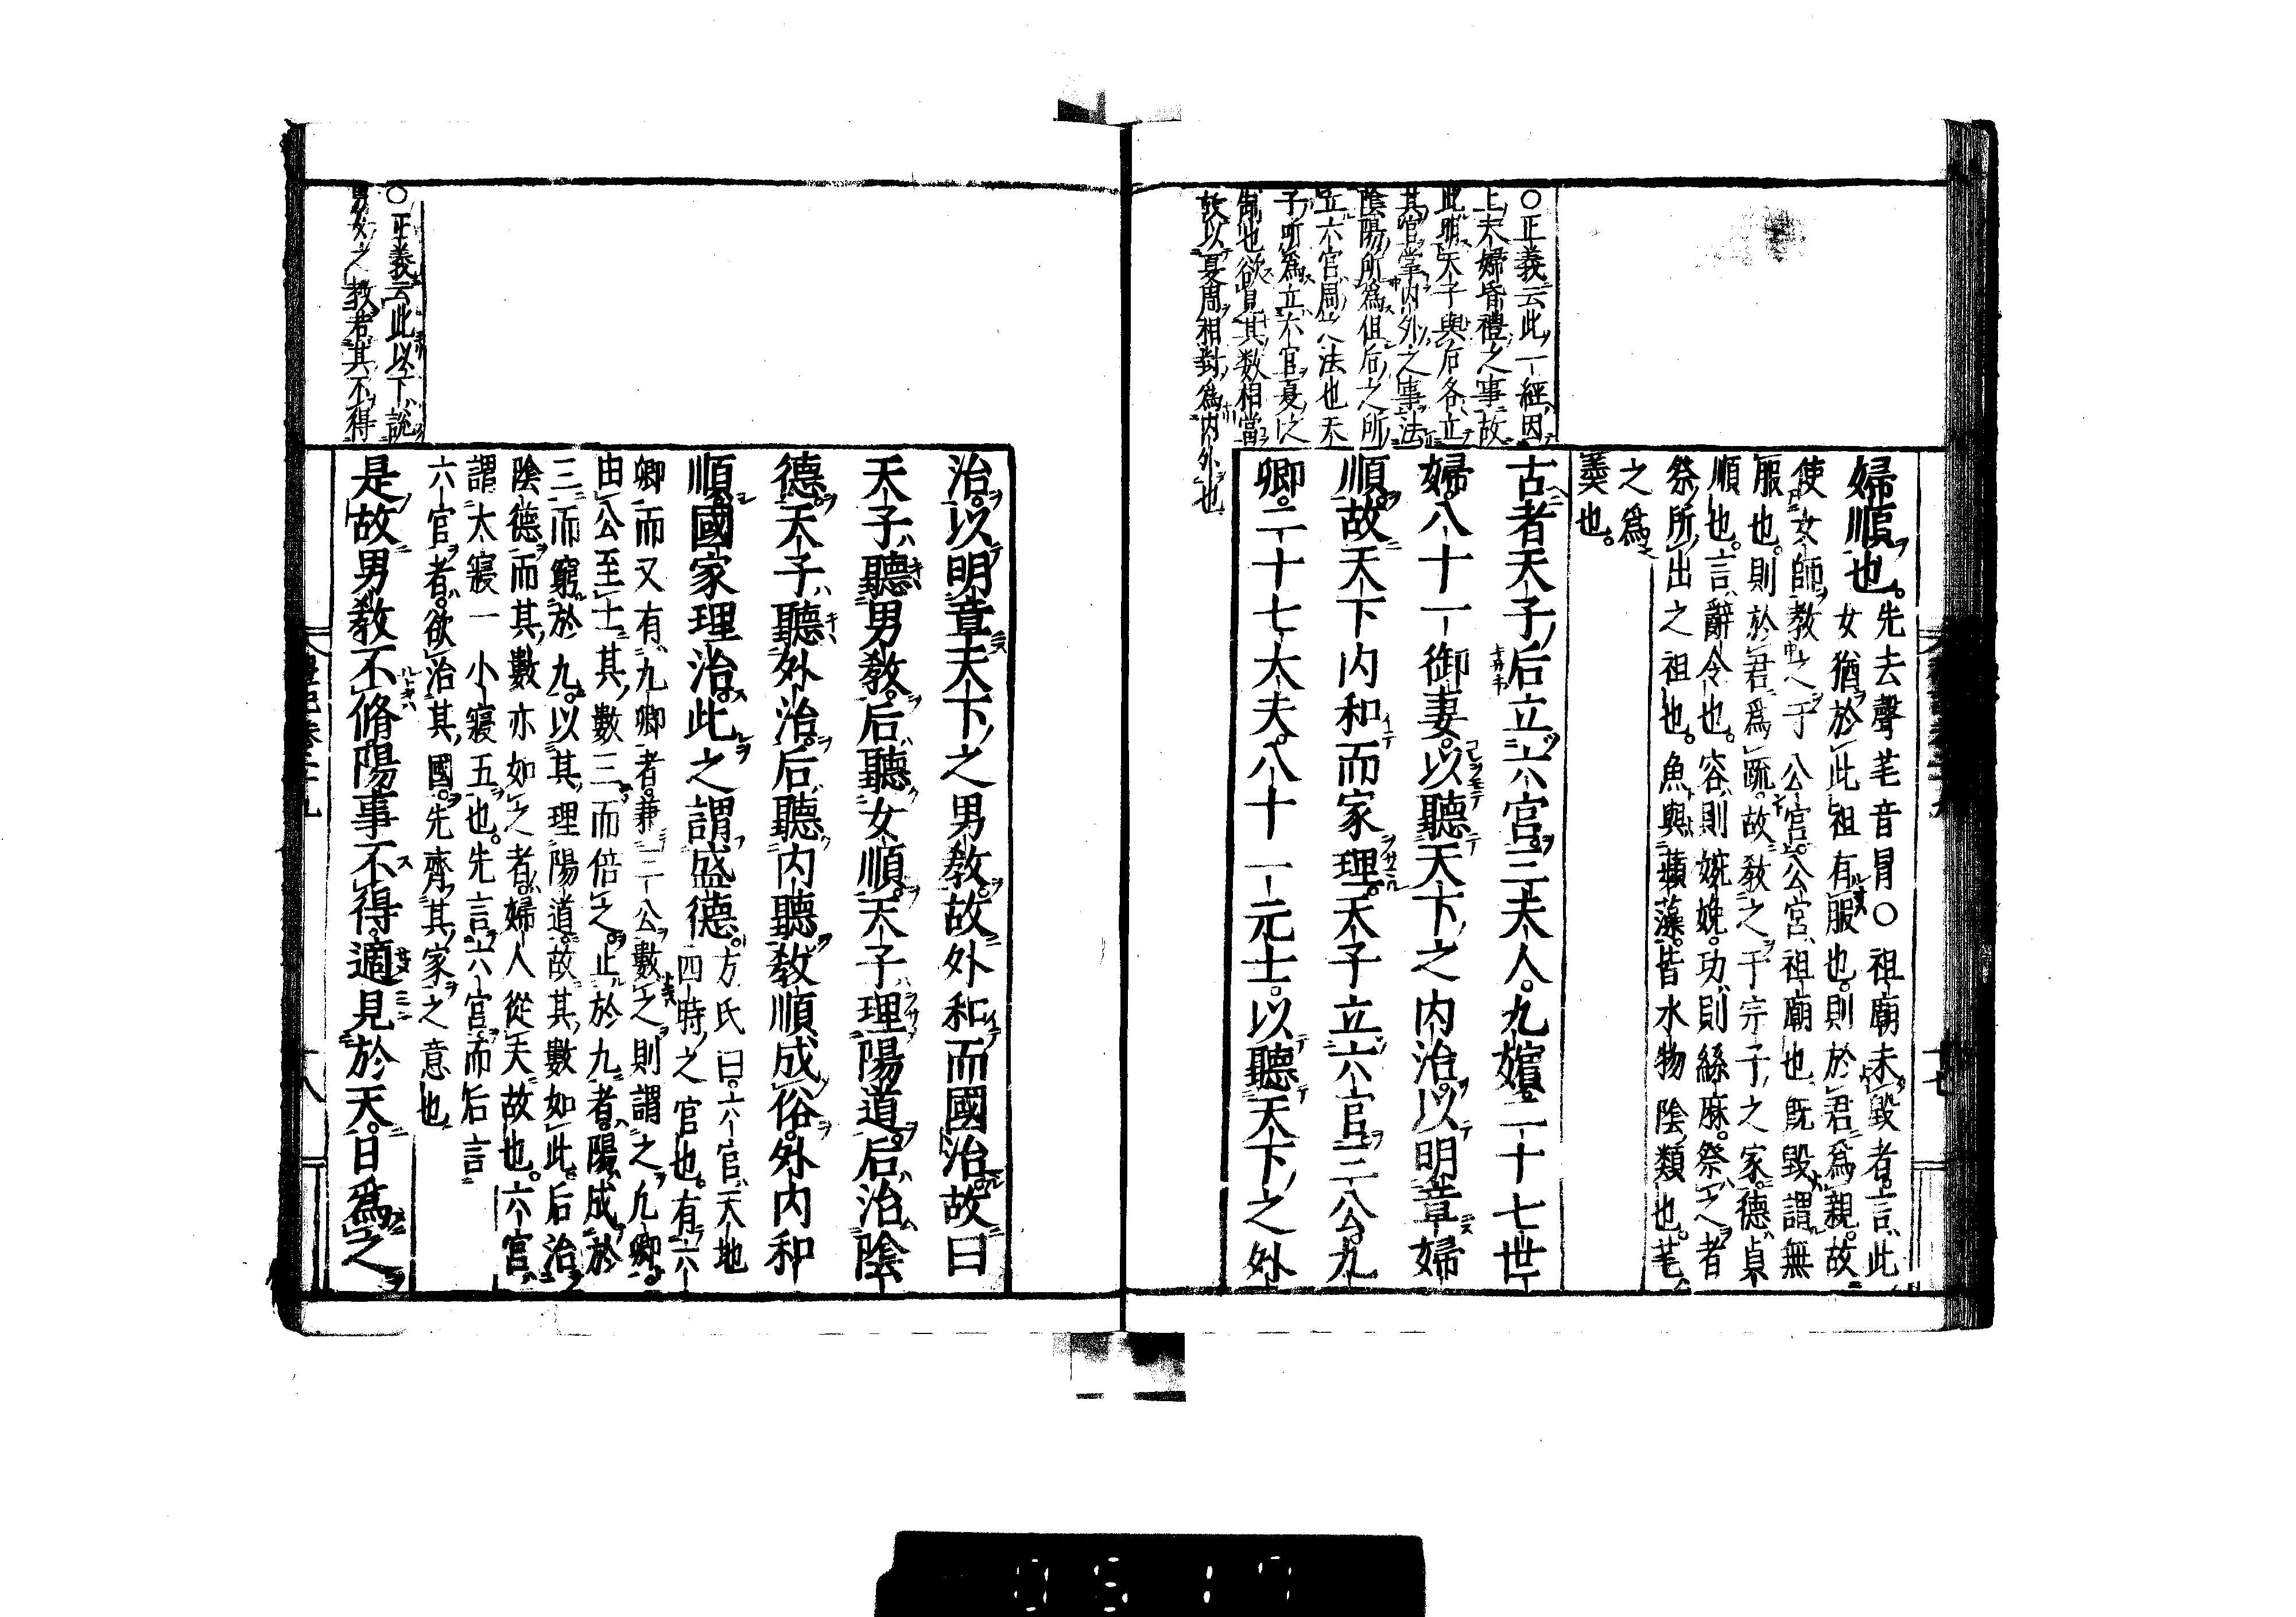 ○正義云此一經因
上夫婦昏禮之事故
此明天子與后各立
其官掌内外之事法
陰陽所爲但后之所
立六宮周之法也天
子所爲立六官夏之
制也欲見其数相當
故以夏周相對爲内外也
婦順也。先去聲芼音冒○祖廟未毀者。言此
女猶於此祖有服也。則於君爲親。故
使女師教之于公宮。公宮祖廟也。既毀謂無
服也。則於君爲疏。故教之于宗子之家。德貞
順也。言辭令也。容則婉娩。功則絲麻。祭之者
祭所出之祖也。魚與蘋藻。皆水物陰類也。芼
之爲
羮也。
古者天子后立六宮。三夫人。九嬪。二十七世
婦。八十一御妻。以聽天下之内治。以明章婦
順。故天下内和而家理。天子立六官。三公。九
卿。二十七大夫。八十一元士。以聽天下之外
治。以明章天下之男教。故外和而國治。故曰
天子聽男教。后聽女順。天子理陽道。后治陰
德。天子聽外治。后聽内聽。教順成俗。外内和
順。國家理治。此之謂盛德。方氏曰。六官天地
四時之官也。有六
卿而又有九卿者。兼三公數之。則謂之九卿。
由公至士其數三而倍之。止於九者。陽成於
三而窮於九。以其理陽道。故其數如此。后治
陰德而其數亦如之者。婦人從天故也。六官
謂大寢一小寢五也。先言六官而后言
六官者。欲治其國。先齊其家之意也
○正義云此以下說
男女之教若其不得
是故男教不脩陽事不得。適見於天。日爲之
禮記卷二十九
十八
十七
0517